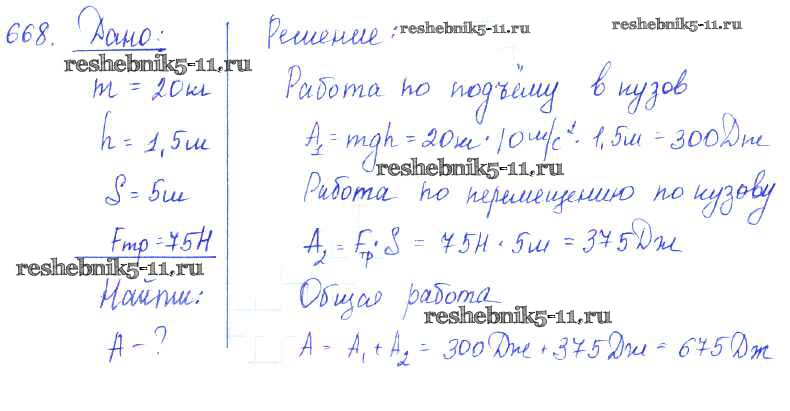 668. Дано:
reshebnik5-11.ru
m = 20кг
h = 1,5м
S = 5м
Fтр = 75Н
reshebnik5-11.ru
Найти:
A - ?
Решение:
reshebnik5-11.ru
reshebnik5-11.ru
Работа по подъёму в кузов
A₁ = mgh = 20кг · 10м/с² · 1,5м = 300Дж
reshebnik5-11.ru
Работа по перемещению по кузову
A₂ = Fтр · S = 75Н · 5м = 375Дж
Общая работа
reshebnik5-11.ru
A = A₁ + A₂ = 300Дж + 375Дж = 675Дж